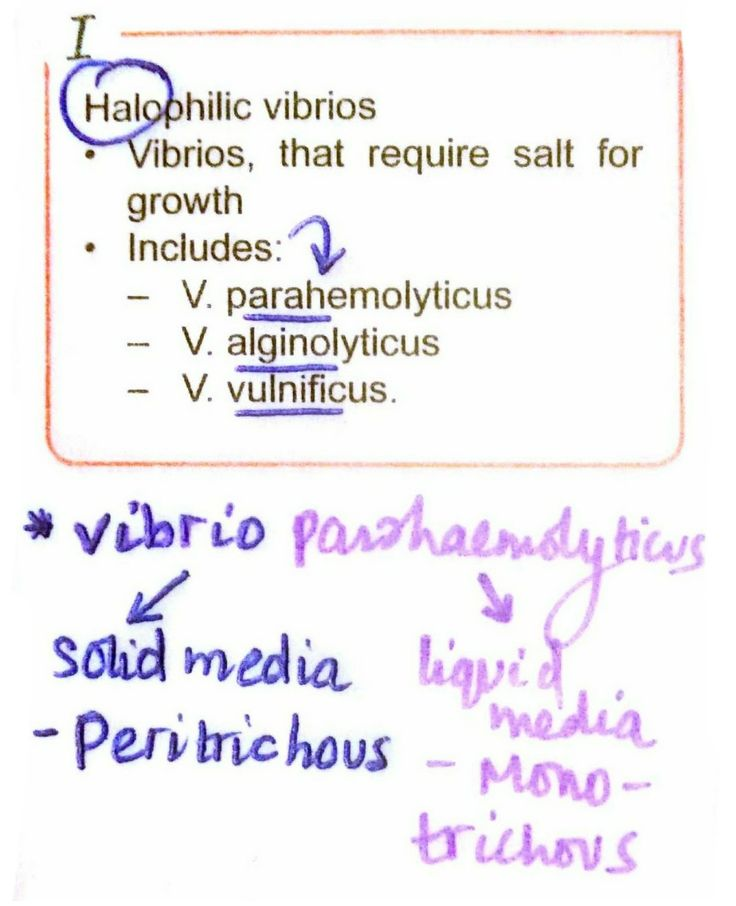 I
Halophilic vibrios
• Vibrios, that require salt for
growth
• Includes:
– V. parahemolyticus
– V. alginolyticus
– V. vulnificus.
* vibrio parahaemolyticus
solid media
- Peritrichous
liquid
media
- Mono-
trichous